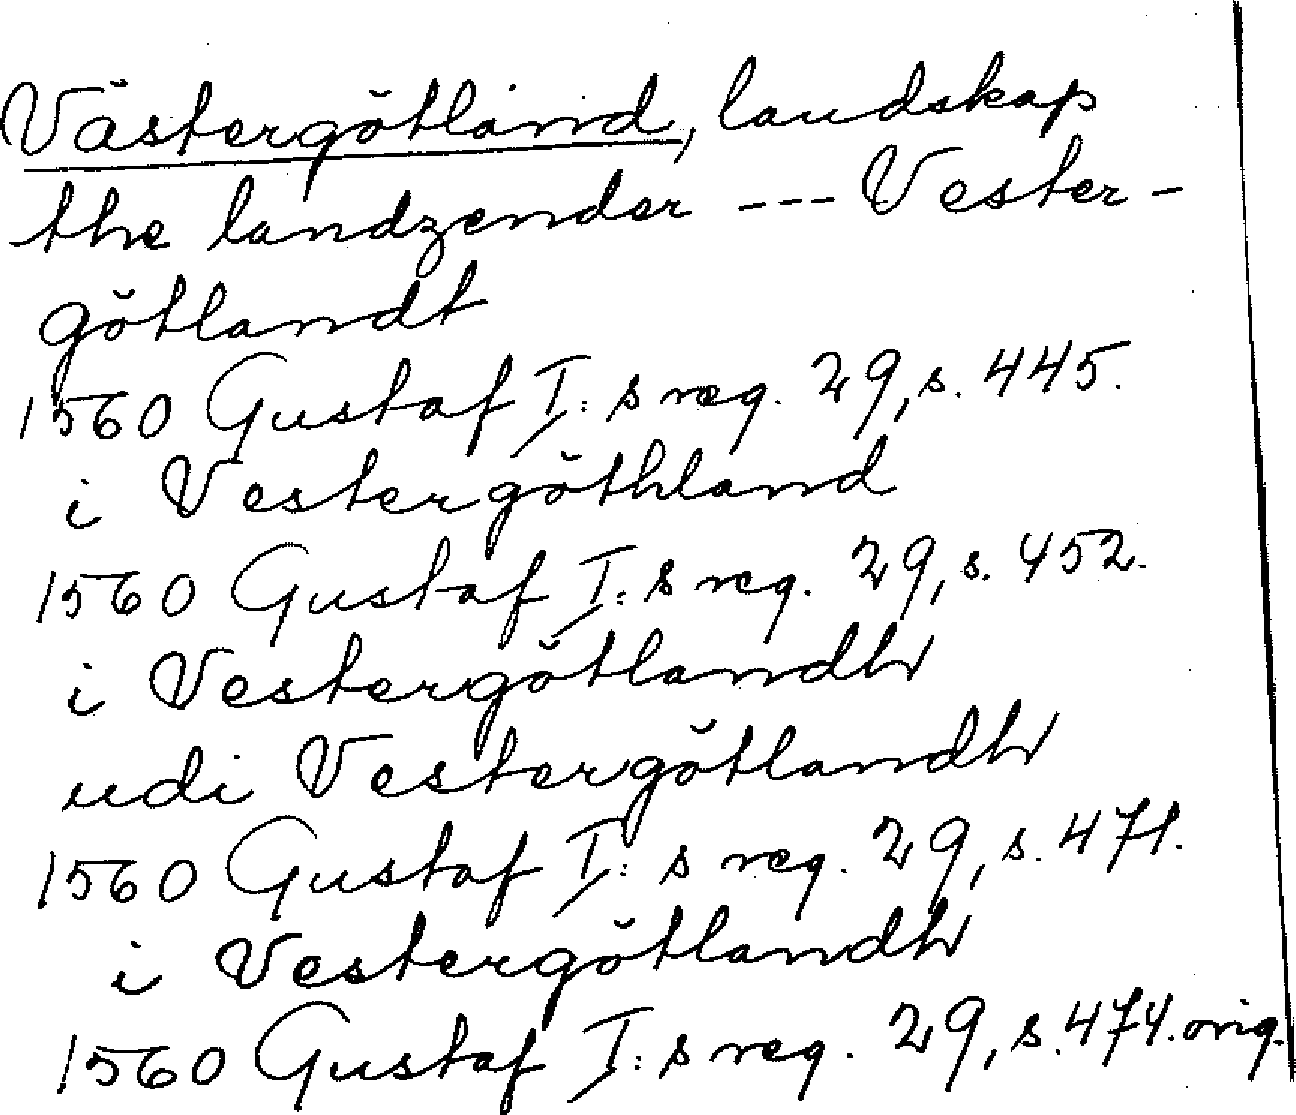 Västergötland, landskap
the landzender --- Vester-
götlandt
1560 Gustaf I:s reg. 29, s. 445.
i Vestergöthland
1560 Gustaf I:s reg. 29, s. 452.
i Vestergötlandh
udi Vestergötlandh
1560 Gustaf I:s reg. 29, s. 471.
i Vestergötlandh
1560 Gustaf I:s reg. 29, s. 474. orig.